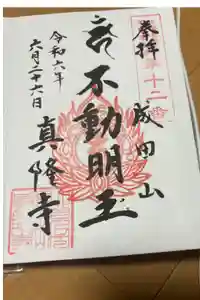 奉拝
十二番
成田山
不動明王
真隆寺
令和六年
六月二十六日